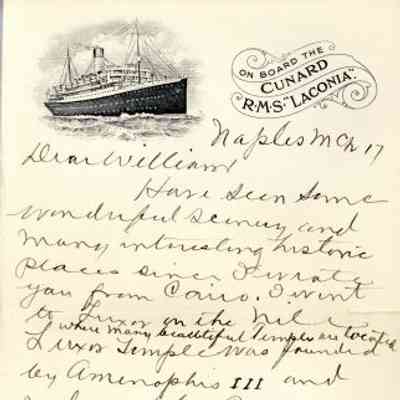 ON BOARD THE
CUNARD
R·M·S·"LACONIA".
Naples Mch 17
Dear William
Have seen some
wonderful scenery and
many interesting historic
places since I wrote
you from Cairo. I went
to Luxor on the Nile
where many beautiful Temples are located
Luxor Temple was founded
by Amenophis III and